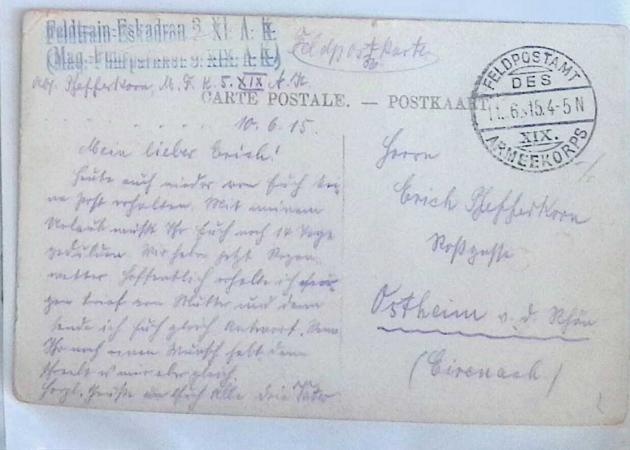 Feldtrain-Eskadron 2 XI. A. K.
(Mag. Fuhrparkkol. 9. XIX. A.K.)
Feldpostkarte
Abs. Pfefferkorn, M. F. K. 5. XIX A. K.
CARTE POSTALE. — POSTKAART
FELDPOSTAMT
DES
11.6.15.4-5 N
XIX.
ARMEEKORPS
10.6.15.
Mein lieber Erich!
Heute auch wieder von Euch kei-
ne Post erhalten. Mit meinem
Urlaub müßt Ihr Euch noch 14 Tage
gedulden. Wir haben jetzt Regen-
wetter. Hoffentlich erhalte ich
gen Brief von Mutter und dann
sende ich Euch gleich Antwort. Wenn
Ihr noch einen Wunsch habt dann
mir aber gleich.
Herzl. Grüße an Euch Alle Dein Vater
Herrn
Erich Pfefferkorn
Roßgasse
Ostheim v. d. Rhön
(Eisenach)